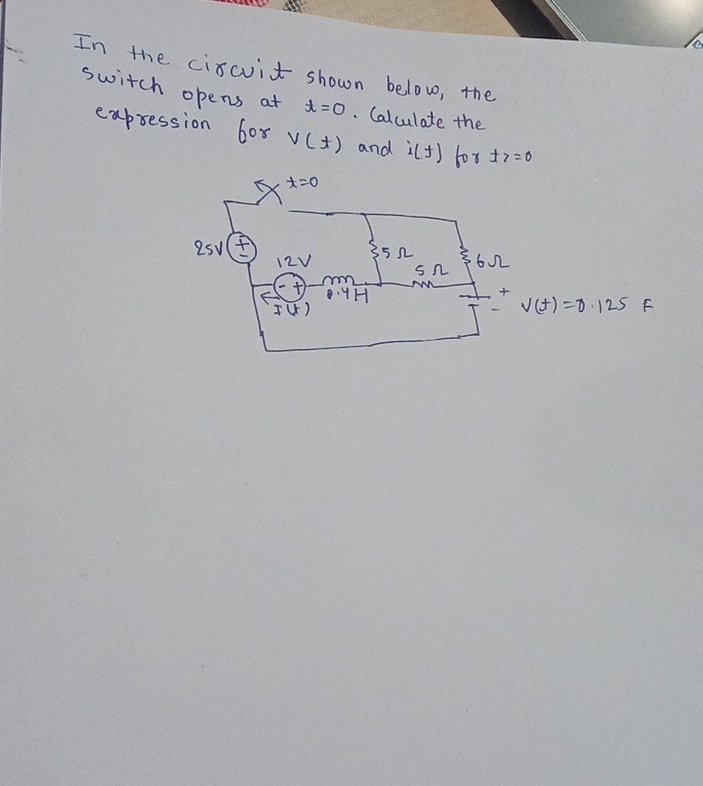 In the circuit shown below, the
switch opens at t=0. Calculate the
expression for v(t) and i(t) for t>=0
t=0
25V
+
-
12V
- +
I(t)
0.4H
5Ω
5Ω
6Ω
+
-
V(t)=0.125 F